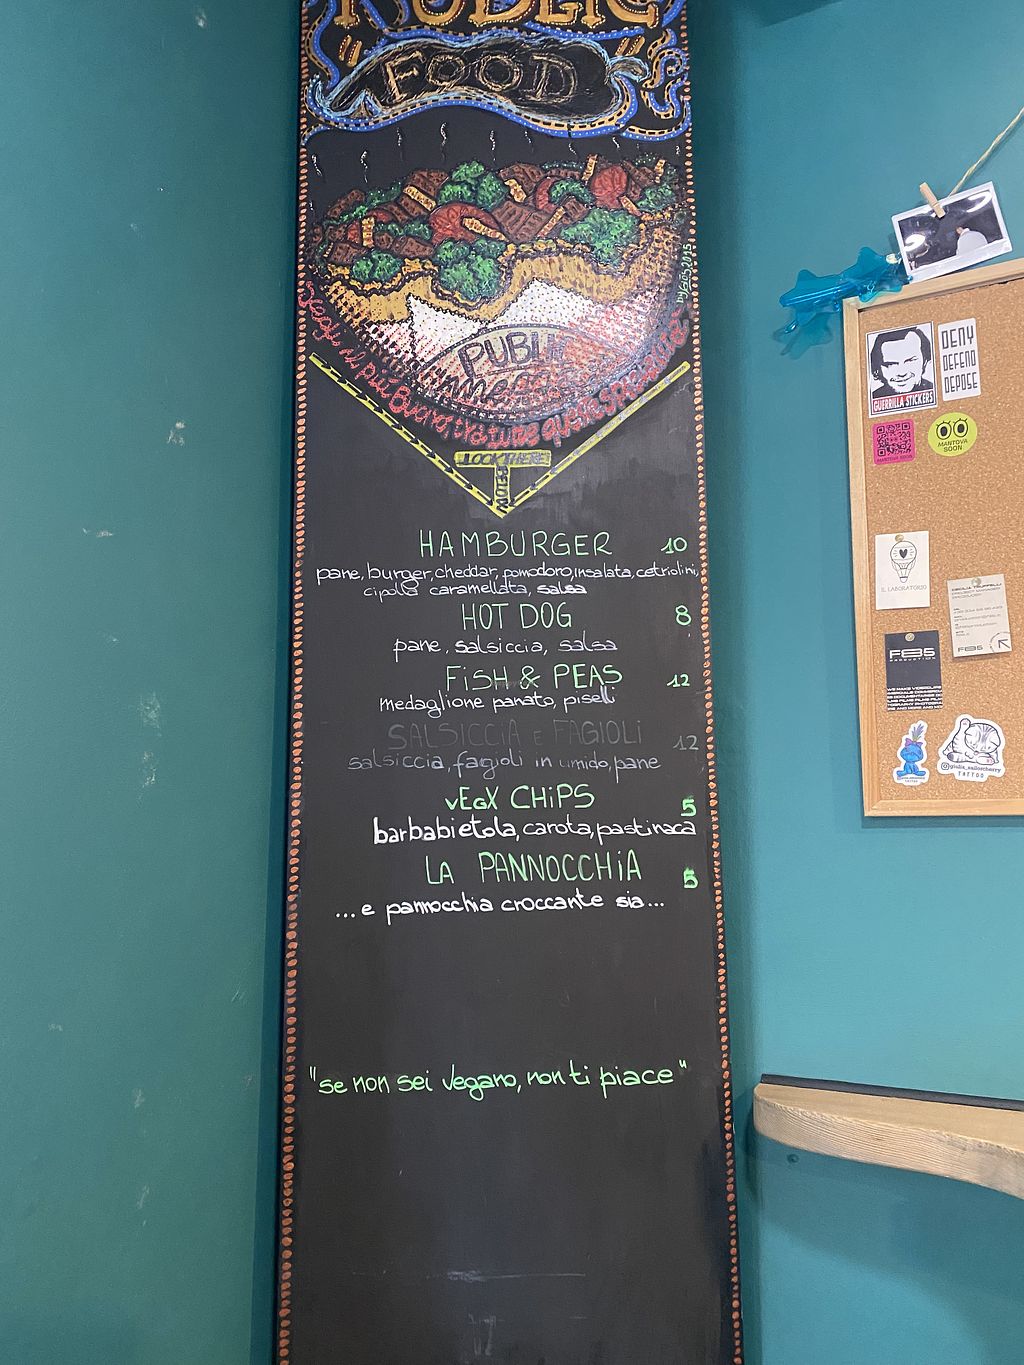 PUBLIC
"FOOD"
by Gios 2015
PUBLIC
LOOK THERE
HAMBURGER 10
pane, burger, cheddar, pomodoro, insalata, cetriolini,
cipolla caramellata, salsa
HOT DOG 8
pane, salsiccia, salsa
FiSH & PEAS 12
medaglione panato, piselli
SALSICCIA e FAGIOLi 12
salsiccia, fagioli in umido, pane
vEGX CHiPS 5
barbabietola, carota, pastinaca
LA PANNOCCHiA 5
...e pannocchia croccante sia...
"se non sei vegano, non ti piace"
GUERRILLA STICKERS
DENY
DEFEND
DEPOSE
MANTOVA
SOON
IL LABORATORIO
F85
PRODUCTION
F85
TATTOO